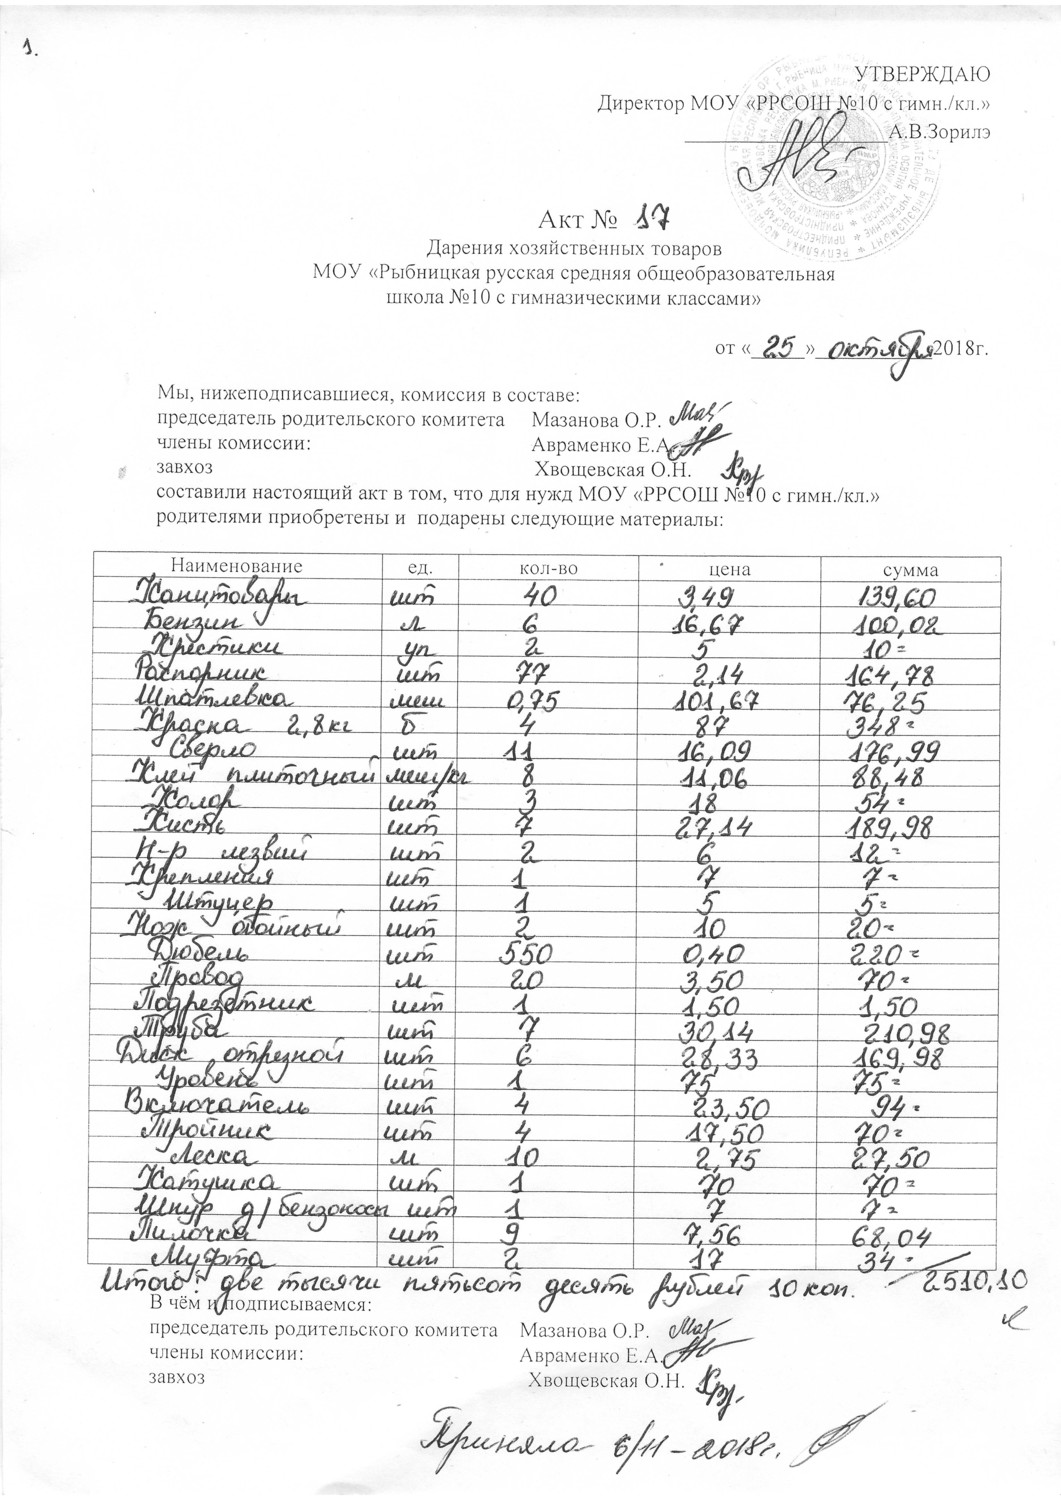 1.
УТВЕРЖДАЮ
Директор МОУ «РРСОШ №10 с гимн./кл.»
А.В.Зорилэ
Акт № 17
Дарения хозяйственных товаров
МОУ «Рыбницкая русская средняя общеобразовательная
школа №10 с гимназическими классами»
от «25» октября 2018г.
Мы, нижеподписавшиеся, комиссия в составе:
председатель родительского комитета Мазанова О.Р.
члены комиссии: Авраменко Е.А.
завхоз Хвощевская О.Н.
составили настоящий акт в том, что для нужд МОУ «РРСОШ №10 с гимн./кл.»
родителями приобретены и подарены следующие материалы:
Наименование ед. кол-во цена сумма
Канцтовары шт 40 3,49 139,60
Бензин л 6 16,67 100,02
Крестики уп 2 5 10=
Распорник шт 77 2,14 164,78
Шпатлевка меш 0,75 101,67 76,25
Краска 2,8кг б 4 87 348=
Сверло шт 11 16,09 176,99
Клей плиточный меш/кг 8 11,06 88,48
Колор шт 3 18 54=
Кисть шт 7 27,14 189,98
Н-р лезвий шт 2 6 12=
Крепления шт 1 7 7=
Штуцер шт 1 5 5=
Нож обойный шт 2 10 20=
Дюбель шт 550 0,40 220=
Провод м 20 3,50 70=
Подрезетник шт 1 1,50 1,50
Труба шт 7 30,14 210,98
Диск отрезной шт 6 28,33 169,98
Уровень шт 1 75 75=
Включатель шт 4 23,50 94=
Тройник шт 4 17,50 70=
Леска м 10 2,75 27,50
Катушка шт 1 70 70=
Шнур д/бензокосы шт 1 7 7=
Пилочка шт 9 7,56 68,04
Муфта шт 2 17 34=
Итого: две тысячи пятьсот десять рублей 10 коп. 2510,10
В чём и подписываемся:
председатель родительского комитета Мазанова О.Р.
члены комиссии: Авраменко Е.А.
завхоз Хвощевская О.Н.
Приняла 6/11-2018г.